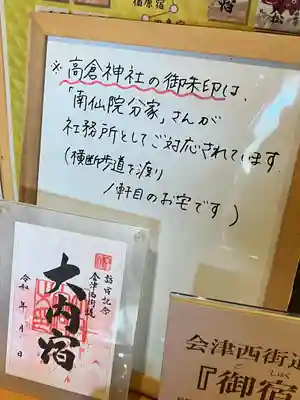 ※高倉神社の御朱印は、
「南仙院分家」さんが
社務所としてご対応されています.
(横断歩道を渡り
1軒目のお宅です)
訪宿記念
会津西街道
大内宿
令和 年 月 日
会津西街道
『御宿